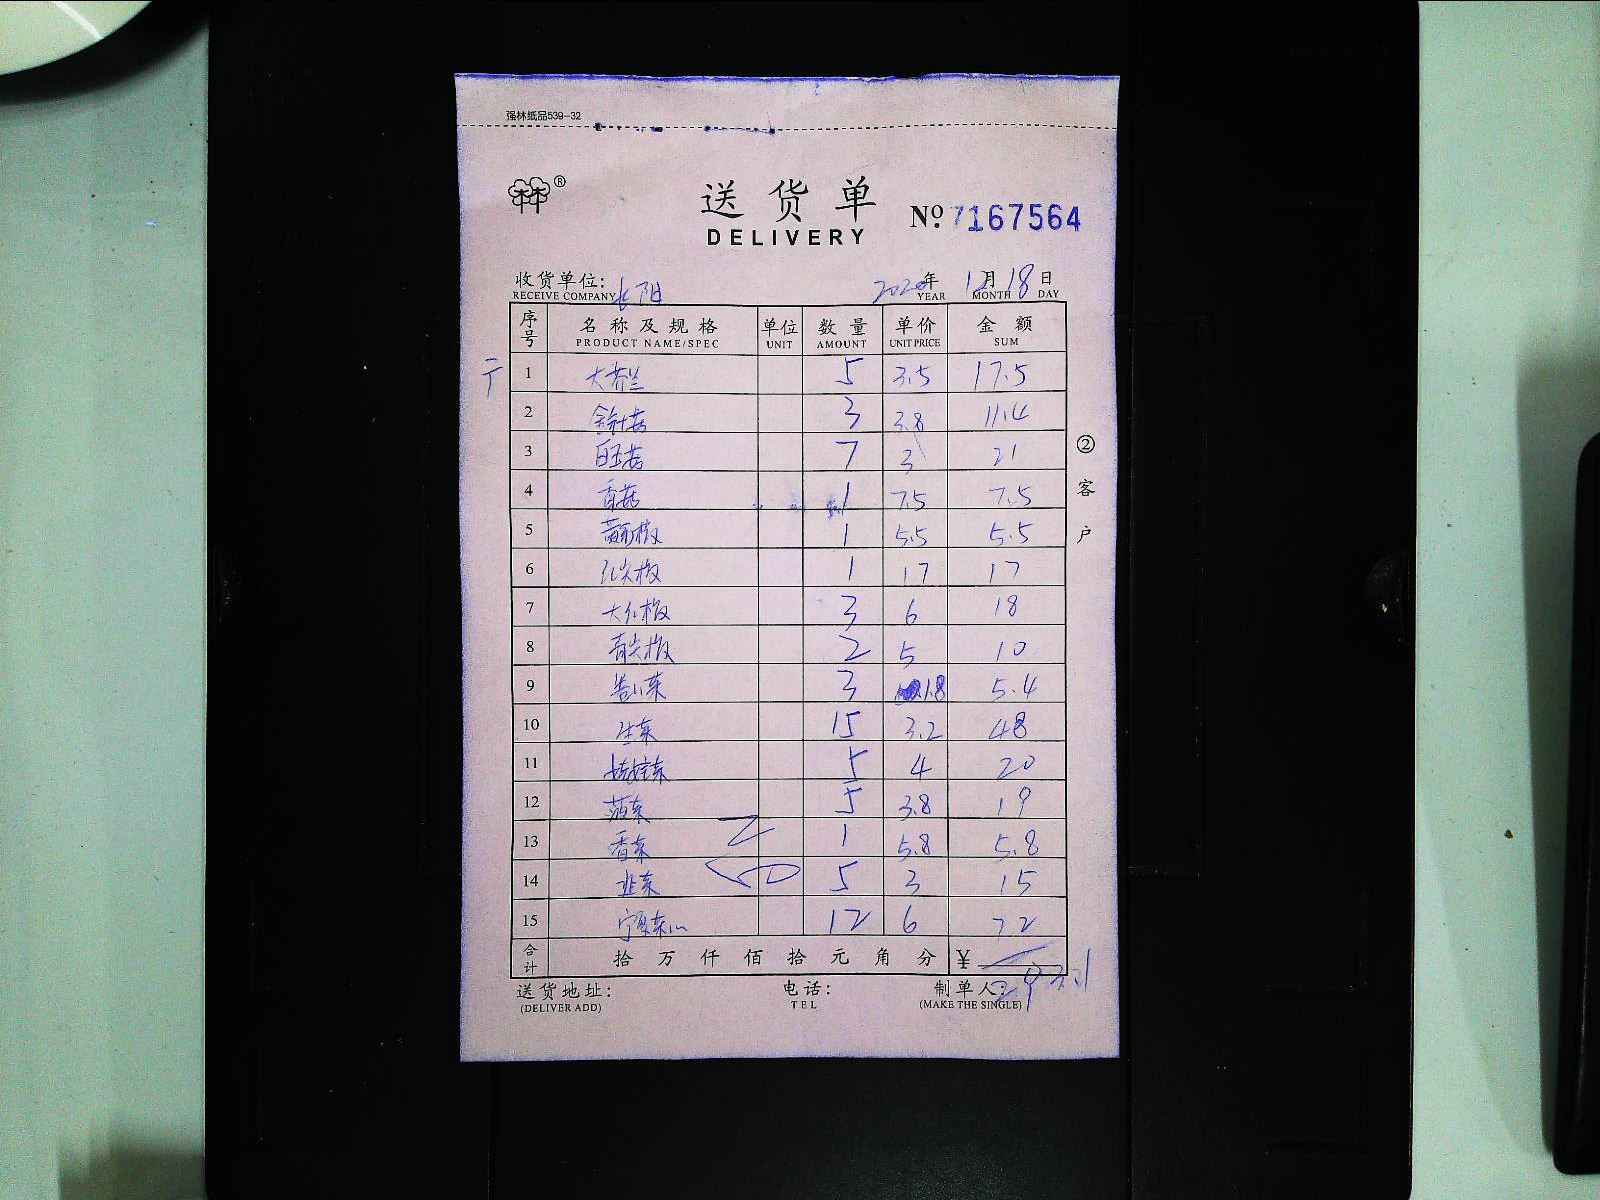 强林纸品539-32
送货单
DELIVERY
№ 7167564
收货单位: 长阳 2020年 12月 18日
RECEIVE COMPANY YEAR MONTH DAY
序号 名称及规格 单位 数量 单价 金额
PRODUCT NAME/SPEC UNIT AMOUNT UNIT PRICE SUM
1 大芥兰 5 3.5 17.5
2 金针菇 3 3.8 11.4
3 白玉菇 7 3 21
4 香菇 1 7.5 7.5
5 1 5.5 5.5
6 红尖椒 1 17 17
7 大红椒 3 6 18
8 青尖椒 2 5 10
9 3 1.8 5.4
10 生菜 15 3.2 48
11 娃娃菜 5 4 20
12 菠菜 5 3.8 19
13 香菜 1 5.8 5.8
14 韭菜 5 3 15
15 宁夏菜心 12 6 72
合计 拾 万 仟 佰 拾 元 角 分 ¥ 293.1
送货地址: 电话: 制单人:
(DELIVER ADD) TEL (MAKE THE SINGLE)
② 客户